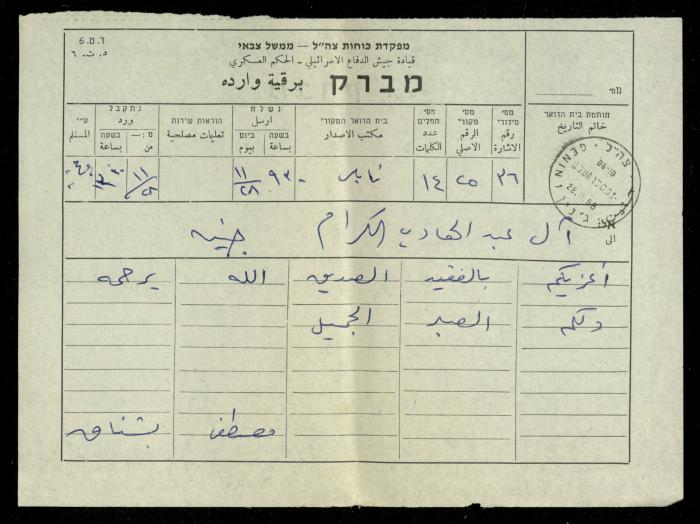 ד.מ.6
د.ت.٦
מפקדת כוחות צה"ל — ממשל צבאי
قيادة جيش الدفاع الاسرائيلي - الحكم العسكري
מברק برقية وارده
מס'
חותמת בית הדואר
خاتم التاريخ
מס' סידורי
رقم الاشارة
מס' מקורי
الرقم الاصلي
מס' המלים
عدد الكلمات
בית הדואר המקורי
مكتب الاصدار
נשלח
ارسل
בשעה
بساعة
ביום
بيوم
הוראות שירות
تعليمات مصلحية
נתקבל
ورد
בשעה
بساعة
מ:—
من
ע"י
المستلم
٣٦ ٢٥ ١٤ نابلس ٩٣٠ ١١/٢٨ ١١/٢٨
GENIN 28.11.68
אל
الى
آل عبد الهادي الكرام جنين
أعزيكم بالفقيد الصديق الله يرحمه
ولكم الصبر الجميل
مصطفى بشناق